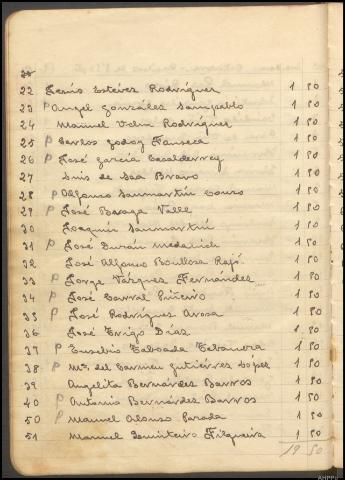 22 Jesús Estévez Rodríguez 1 50
23 P Angel González Sampablo 1 50
24 Manuel Rodríguez 1 50
25 P Carlos Godoy Fonseca 1 50
26 P José García Casalderrey 1 50
27 Luis de Saa Bravo 1 50
28 P Alfonso Sanmartín Couso 1 50
29 P José Valle 1 50
30 Joaquín Sanmartín 1 50
31 P José Durán 1 50
32 José Alfonso Boullosa 1 50
33 P Jorge Vázquez Fernández 1 50
34 P José Carral Piñeiro 1 50
35 P José Rodríguez Arosa 1 50
36 José Trigo Dïas 1 50
37 P Eusebio Taboada Tabanera 1 50
38 P Mª del Carmen Gutiérrez López 1 50
39 Angelita Bernárdez Barros 1 50
40 P Antonio Bernárdez Barros 1 50
50 P Manuel Alonso Parada 1 50
51 Manuel Quinteiro Filgueira 1 50
19 50
AHPPo